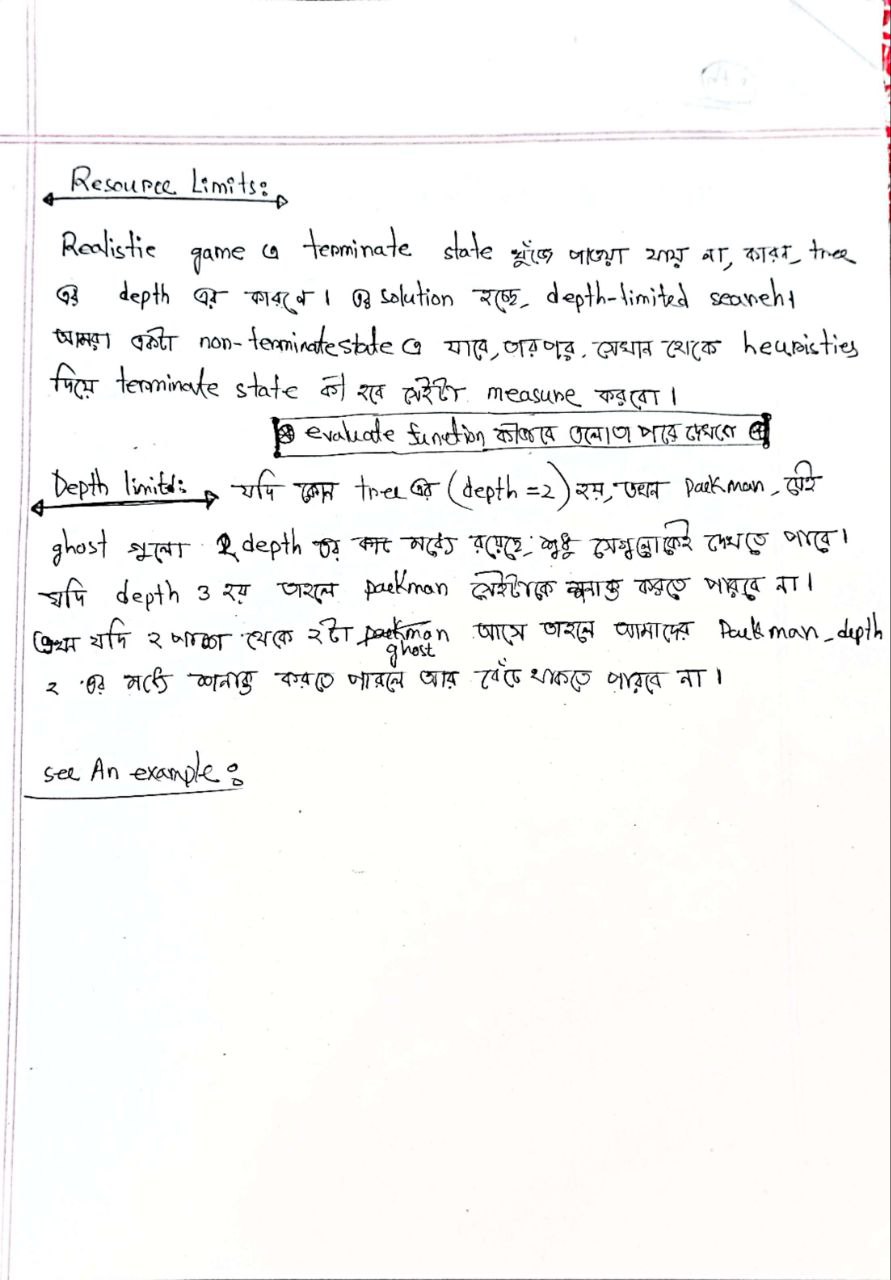 Resource Limits:
Realistic game এ terminate state খুঁজে পাওয়া যায় না, কারন, tree
এর depth এর কারনে। এর solution হচ্ছে, depth-limited search।
আমরা একটা non-terminate state এ যাবে, তারপর, সেখান থেকে heuristics
দিয়ে terminate state কী হবে সেইটা measure করবো।
evaluate function কীভাবে এলো তা পরে দেখবো
Depth limited: যদি কোন tree এর (depth = 2) হয়, তখন Packman, যেই
ghost গুলো 2 depth এর মধ্যে রয়েছে, শুধু সেগুলোকেই দেখতে পাবে।
যদি depth 3 হয় তাহলে packman সেইটাকে শনাক্ত করতে পারবে না।
এখন যদি ২ পাশ থেকে ২টা ghost আসে তাহলে আমাদের Packman, depth
২ এর মধ্যে শনাক্ত করতে পারলে আর বেঁচে থাকতে পারবে না।
see An example: